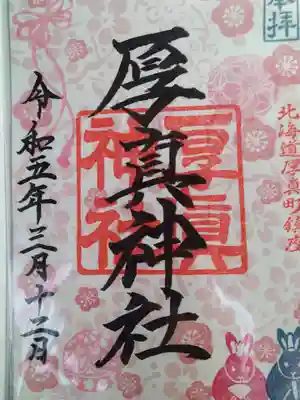 奉拝
北海道厚真町鎮座
厚真神社
厚真
神社
令和五年三月十二日